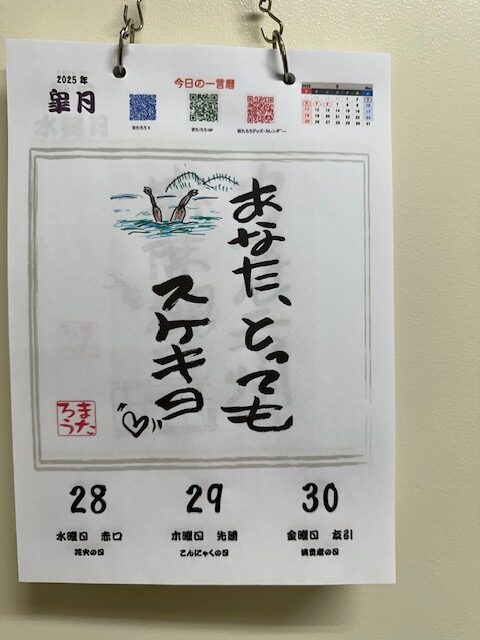 2025年
皐月
今日の一言暦
あなた、とっても
スケキヨ
まうたろう
28
29
30
水曜日 赤口
木曜日 先勝
金曜日 友引
花火の日
こんにゃくの日
消費者の日